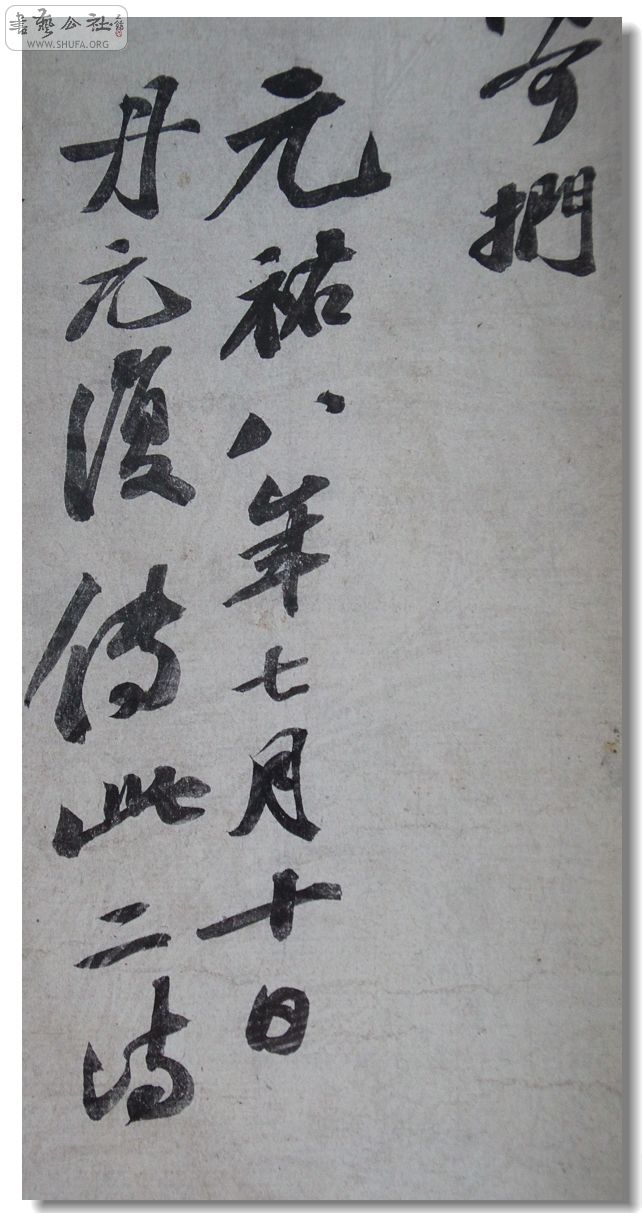 書藝公社
WWW.SHUFA.ORG
可捫
元祐八年七月十日
丹元復傳此二詩